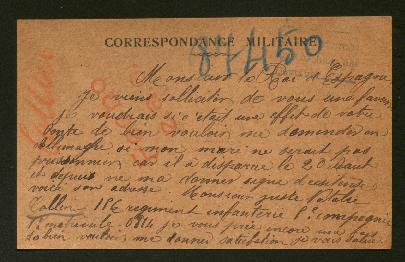 CORRESPONDANCE MILITAIRE
87450
Monsieur le Roi d'Espagne
Je viens solliciter de vous une faveur
je voudrais si c'était une effet de votre
bonté de bien vouloir me demander en
allemagne si mon mari ne serait pas
prisonnier car il a disparue le 20 aout
et depuis ne ma donner signe d'existence
voici son adresse Monsieur
Collin 156 regiment infanterie compagnie
matricule je vous prie encore une fois
de bien vouloir me donner satisfaction je vous salue